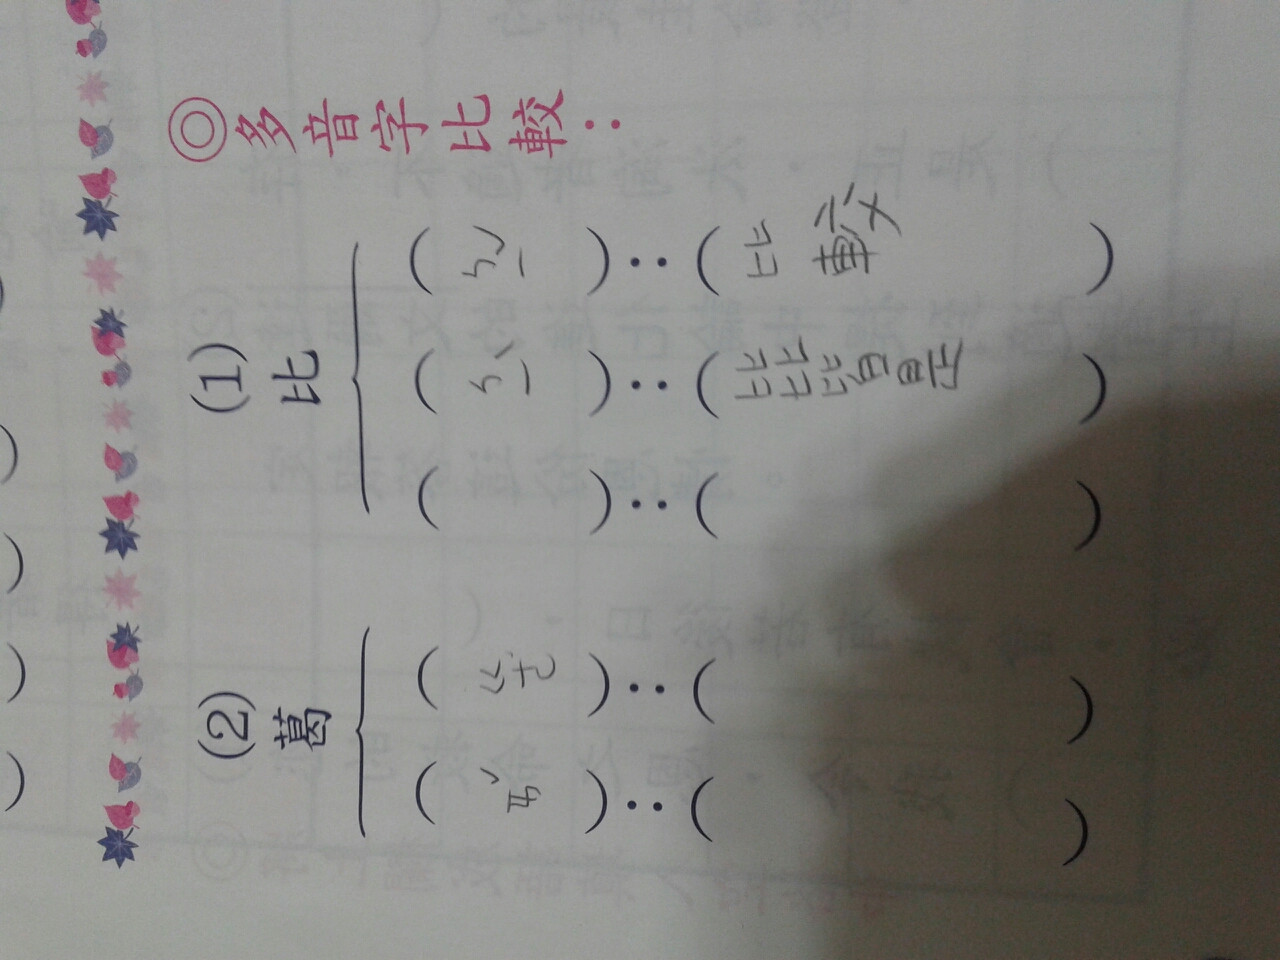 ◎多音字比較：
(1)比
(ㄅㄧˇ)：(比較)
(ㄅㄧˋ)：(比比皆是)
( )：( )
(2)葛
(ㄍㄜˊ)：( )
( )：( )